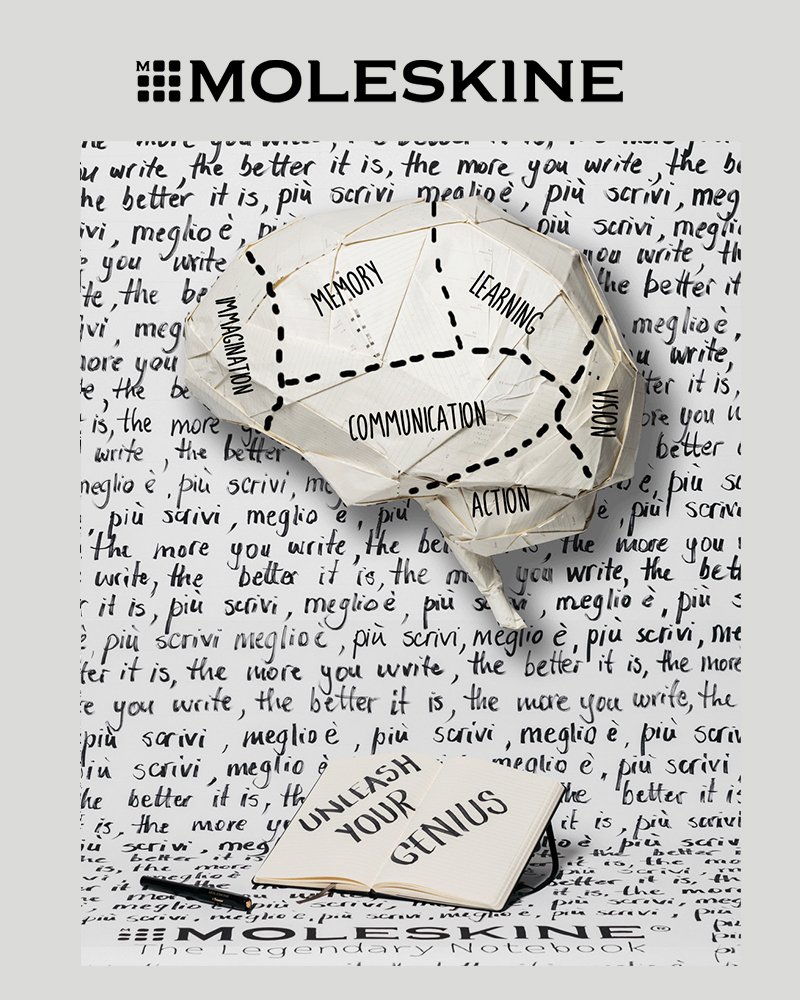 M MOLESKINE
the more you write, the better it is, the more you
write, the better it is, the more you write, the
he better it is, più scrivi, meglio è, più scrivi, meg
ivi, meglio è, più scrivi,
you write the more you write, th
te, the be the better it
ivi, meg meglio è,
more you write,
e, the be ter it is,
is, the more re you w
write, the better better
neglio è, più scrivi, me è, più sc
più scrivi, meglio è, più è, più scrivi
the more you write, the bet the more you
write, the better it is, the m you write, the bett
r it is, più scrivi, meglio è, più s meglio è, più s
è, più scrivi meglio è, più scrivi, meglio è, più scrivi, me
ter it is, the more you wvite, the better it is, the more
e you write, the better it is, the more you write, the
più scrivi, meglio è, più scrivi, meglio è, più scrivi
iù scrivi, meglio è meglio è, più scrivi,
he better it is, th the better it is
is, the more yo it is, più scrivi
ù scrivi, meg
IMMAGINATION
MEMORY
LEARNING
VISION
COMMUNICATION
ACTION
UNLEASH
YOUR
GENIUS
MOLESKINE®
The Legendary Notebook